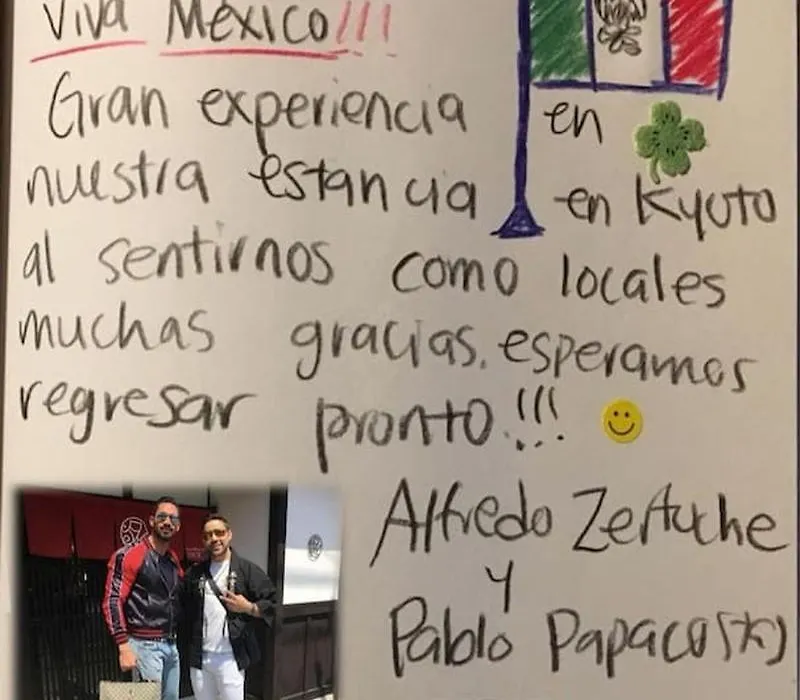 Viva México!!!
Gran experiencia en
nuestra estancia en Kyoto
al sentirnos como locales
muchas gracias. esperamos
regresar pronto!!!
Alfredo Zertuche
y
Pablo Papaco